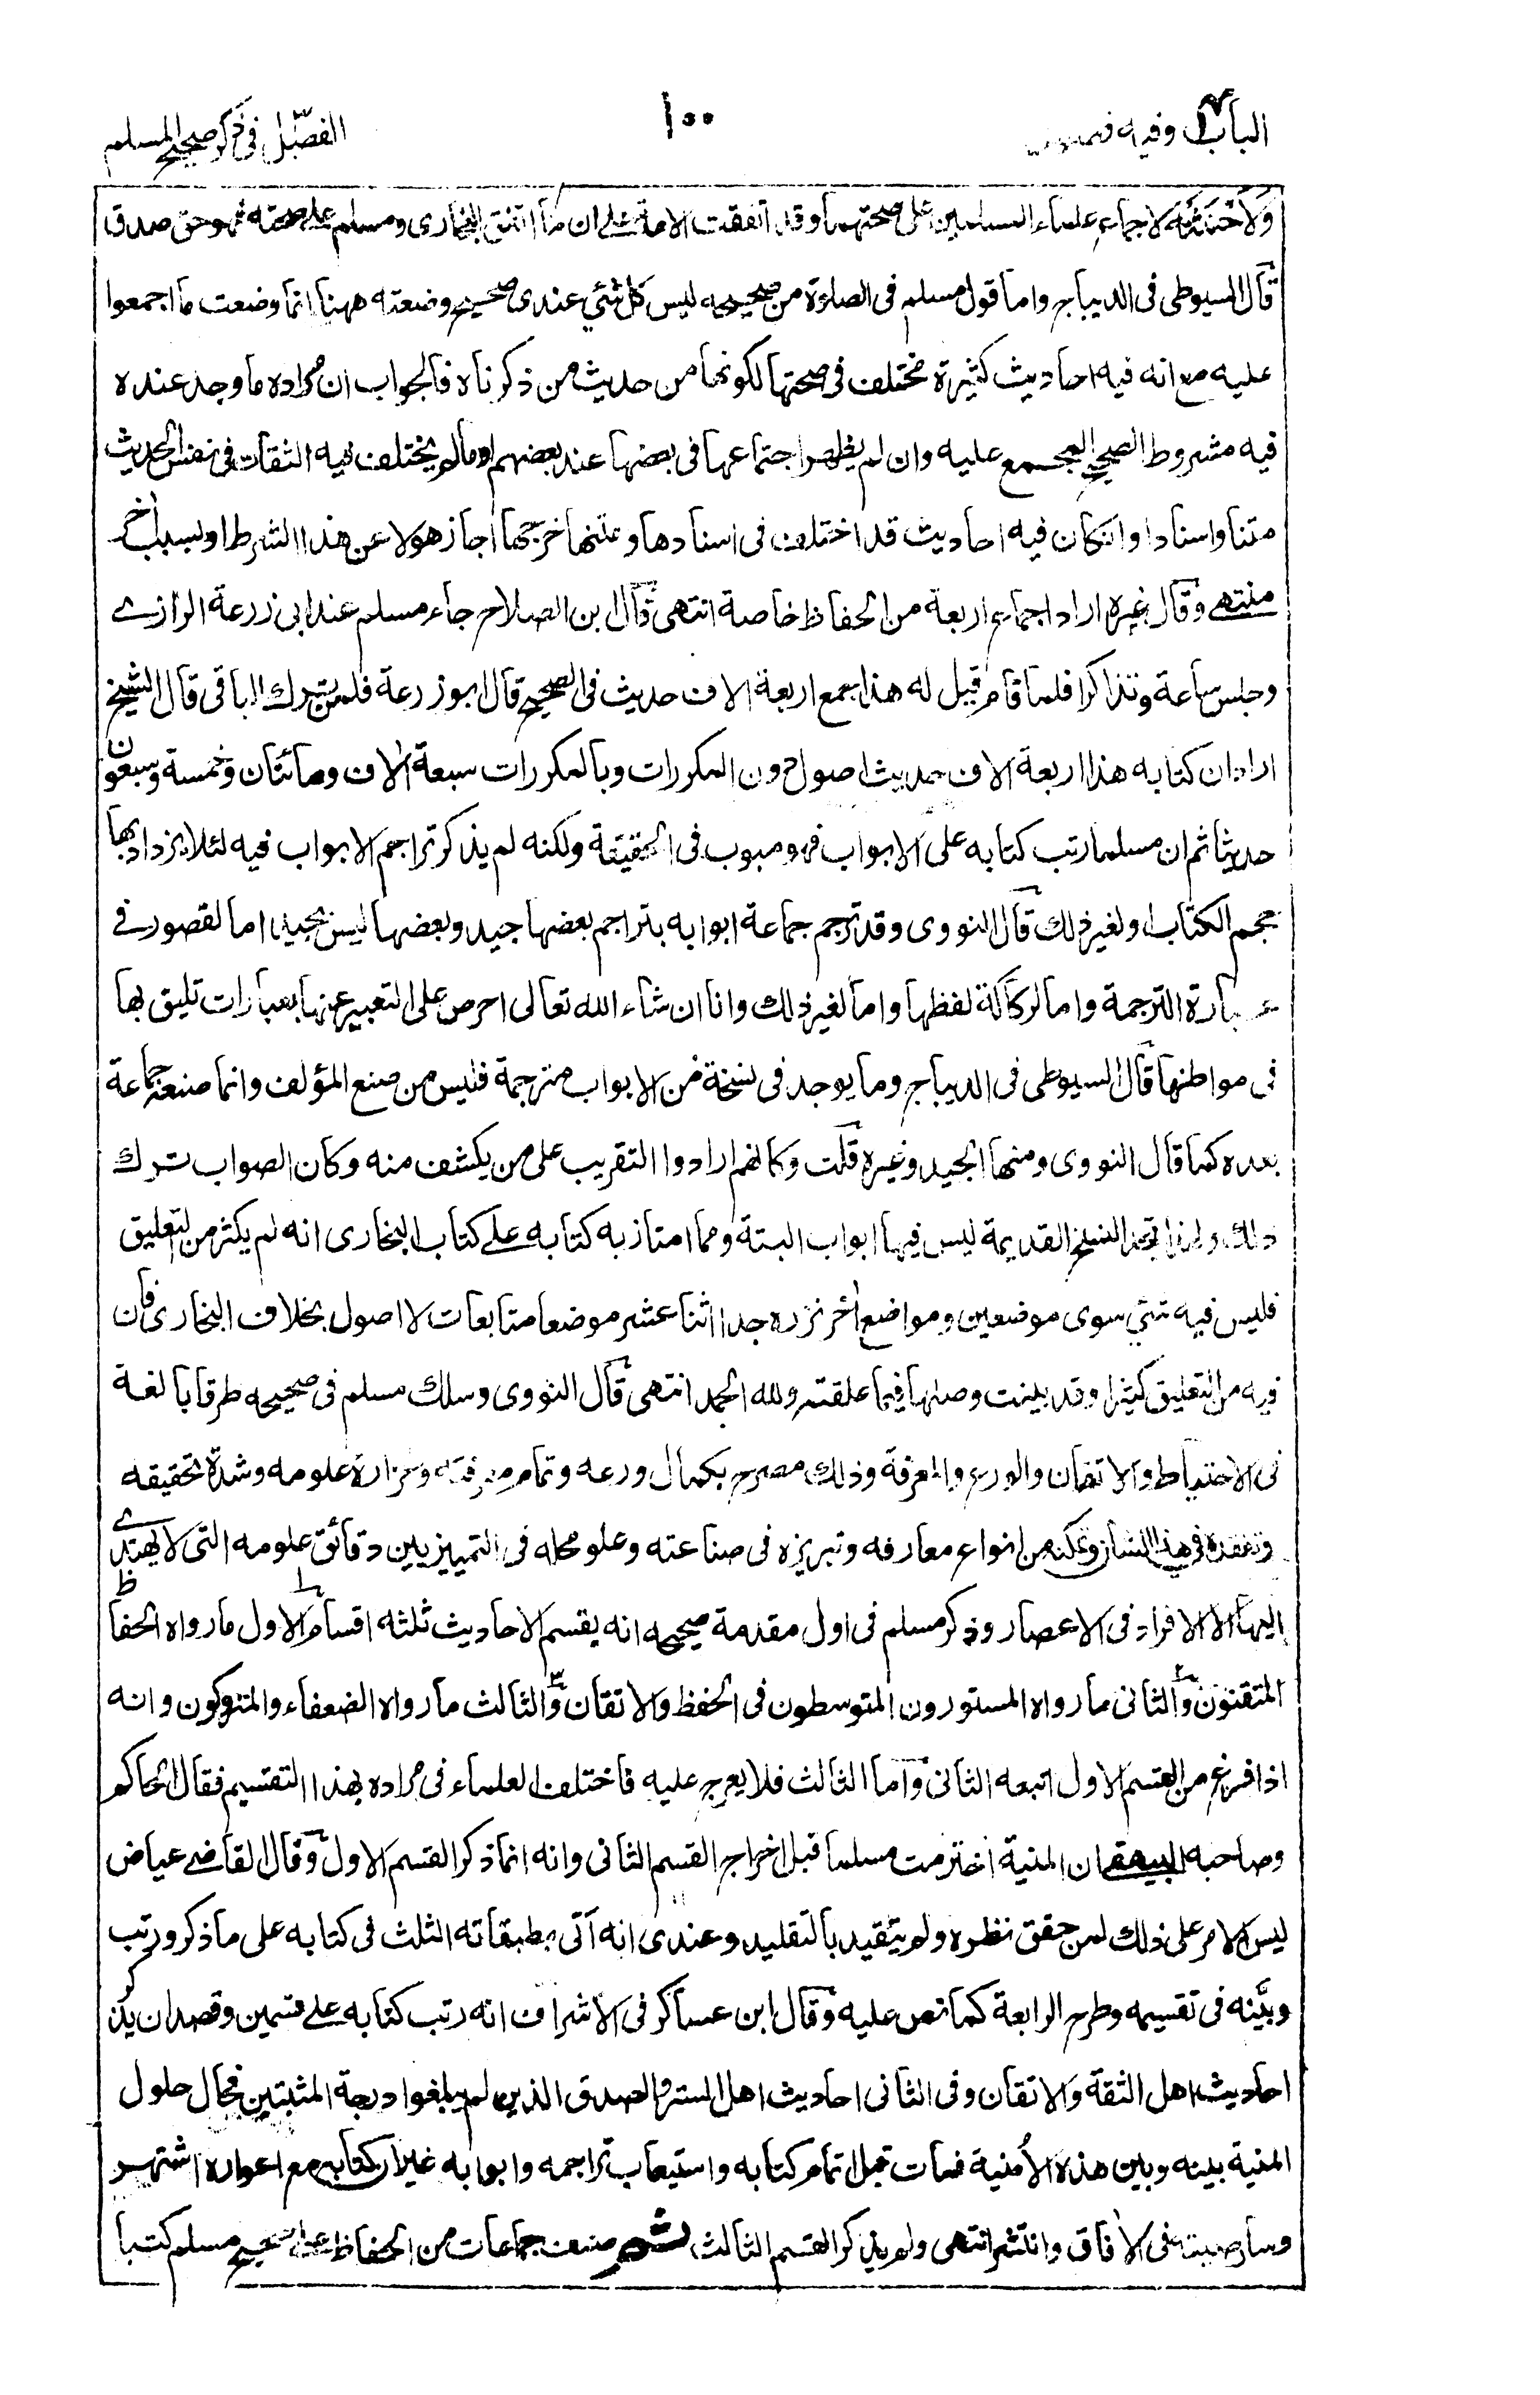 الباب وفيه فصول
١٠٠
الفصل فى ذكر صحيح المسلم
لاجماع علماء المسلمين على صحتهما وقد اتفقت الامة على ان ما اتفق البخارى ومسلم على صحته فهو حق صدق
قال السيوطى فى الديباج واما قول مسلم فى الصلوة من صحيحه ليس كل شئي عندى صحيح وضعته ههنا انما وضعت ما اجمعوا
عليه مع انه فيه احاديث كثيرة مختلف فى صحتها لكونها من حديث من ذكرناه فالجواب ان مراده ما وجد عنده
فيه مشروط الصحيح المجمع عليه وان لم يظهر اجتماعها فى بعضها عند بعضهم او ما لم يختلف فيه الثقات فى نفس الحديث
متنا واسنادا وان كان فيه احاديث قد اختلف فى اسنادها ومتنها عن هذا الشرط او لسبب اخر
منتهے وقال غيره اراد اجماع اربعة من الحفاظ خاصة انتهى قال ابن الصلاح جاء مسلم عند ابى زرعة الرازے
وجلس ساعة وتذاكرا فلما قام قيل له هذا جمع اربعة الاف حديث فى الصحيح قال ابو زرعة فلمن ترك الباقى قال الشيخ
اراد ان كتابه هذا اربعة الاف حديث اصول دون المكررات وبالمكررات سبعة الاف ومائتان وخمسة وسبعون
حديثا ثم ان مسلما رتب كتابه على الابواب فهو مبوب فى الحقيقة ولكنه لم يذكر تراجم الابواب فيه لئلا يزداد بها
حجم الكتاب او لغير ذلك قال النووى وقد ترجم جماعة ابوابه بتراجم بعضها جيد وبعضها ليس بجيد اما لقصور فے
عبارة الترجمة واما لركاكة لفظها واما لغير ذلك وانا ان شاء الله تعالى احرص على التعبير عنها بعبارات تليق بها
فى مواطنها قال السيوطى فى الديباج وما يوجد فى نسخة من الابواب مترجمة فليس من صنع المؤلف وانما صنعه جماعة
بعده كما قال النووى ومنها الجيد وغيره قلت وكانهم ارادوا التقريب على من يكشف منه وكان الصواب ترك
ذلك ولهذا تجد النسخ القديمة ليس فيها ابواب البتة ومما امتاز به كتابه علے كتاب البخارى انه لم يكثر من التعليق
فليس فيه شئي سوى موضعين ومواضع اخر نزره جدا اثنا عشر موضعا متابعات لا اصول بخلاف البخارى فان
فيه من التعليق كثيرا وقد بينت وصلها فيما علقته ولله الحمد انتهى قال النووى وسلك مسلم فى صحيحه طرقا بالغة
فى الاحتياط والاتقان والورع والمعرفة وذلك مصرح بكمال ورعه وتمام معرفته وغزارة علومه وشدة تحقيقه
وتفقده فى هذا الشان وتمكنه من انواع معارفه وتبريزه فى صناعته وعلو محله فى التمييز بين دقائق علومه التى لا يهتدے
اليها الا الافراد فى الاعصار وذكر مسلم فى اول مقدمة صحيحه انه يقسم الاحاديث ثلثه اقسام الاول ما رواه الحفاظ
المتقنون والثانى ما رواه المستورون المتوسطون فى الحفظ والاتقان والثالث ما رواه الضعفاء والمتروكون وانه
اذا فرغ من القسم الاول اتبعه الثانى واما الثالث فلا يعرج عليه فاختلف العلماء فى مراده بهذا التقسيم فقال الحاكم
وصاحبه البيهقے ان المنية اخترمت مسلما قبل اخراج القسم الثانى وانه انما ذكر القسم الاول وقال القاضے عياض
ليس الامر على ذلك لمن حقق نظره ولم يتقيد بالتقليد وعندى انه اتى بطبقاته الثلث فى كتابه على ما ذكر ورتب
وبينه فى تقسيمه وطرح الرابعة كما نص عليه وقال ابن عساكر فى الاشراف انه رتب كتابه علے قسمين وقصد ان يذكر
احاديث اهل الثقة والاتقان وفى الثانى احاديث اهل الستر والصدق الذين لم يبلغوا درجة المثبتين فحال حلول
المنية بينه وبين هذه الأمنية فمات قبل اتمام كتابه واستيعاب تراجمه وابوابه غير ان كتابه مع اعوازه اشتهر
وسار صيته فى الافاق وانتشر انتهى ولم يذكر القسم الثالث ثم صنف جماعات من الحفاظ على صحيح مسلم كتبا